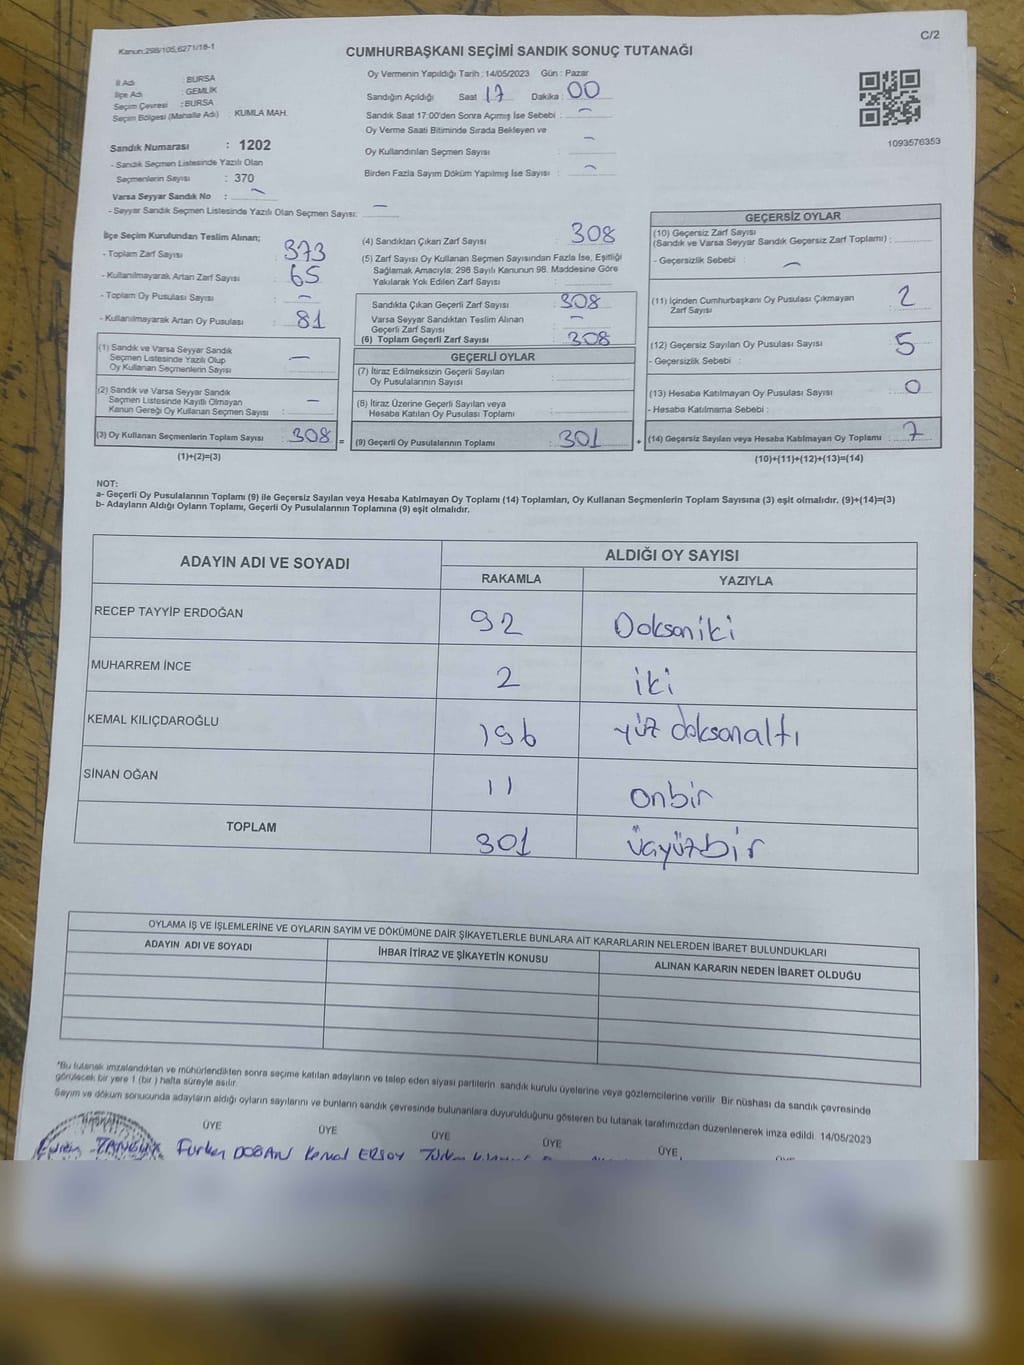 Kanun:298/105,6271/18-1
C/2
CUMHURBAŞKANI SEÇİMİ SANDIK SONUÇ TUTANAĞI
İl Adı : BURSA
İlçe Adı : GEMLİK
Seçim Çevresi : BURSA
Seçim Bölgesi (Mahalle Adı) : KUMLA MAH.
Sandık Numarası : 1202
- Sandık Seçmen Listesinde Yazılı Olan
Seçmenlerin Sayısı : 370
Varsa Seyyar Sandık No : —
- Seyyar Sandık Seçmen Listesinde Yazılı Olan Seçmen Sayısı: —
Oy Vermenin Yapıldığı Tarih : 14/05/2023 Gün : Pazar
Sandığın Açıldığı Saat 17 Dakika : 00
Sandık Saat 17:00'den Sonra Açılmış İse Sebebi : —
Oy Verme Saati Bitiminde Sırada Bekleyen ve
Oy Kullandırılan Seçmen Sayısı : —
Birden Fazla Sayım Döküm Yapılmış İse Sayısı : —
1093576353
İlçe Seçim Kurulundan Teslim Alınan;
- Toplam Zarf Sayısı : 373
- Kullanılmayarak Artan Zarf Sayısı : 65
- Toplam Oy Pusulası Sayısı : —
- Kullanılmayarak Artan Oy Pusulası : 81
(1) Sandık ve Varsa Seyyar Sandık
Seçmen Listesinde Yazılı Olup
Oy Kullanan Seçmenlerin Sayısı : —
(2) Sandık ve Varsa Seyyar Sandık
Seçmen Listesinde Kayıtlı Olmayan
Kanun Gereği Oy Kullanan Seçmen Sayısı : —
(3) Oy Kullanan Seçmenlerin Toplam Sayısı : 308 =
(1)+(2)=(3)
(4) Sandıktan Çıkan Zarf Sayısı : 308
(5) Zarf Sayısı Oy Kullanan Seçmen Sayısından Fazla İse, Eşitliği
Sağlamak Amacıyla, 298 Sayılı Kanunun 98. Maddesine Göre
Yakılarak Yok Edilen Zarf Sayısı :
Sandıkta Çıkan Geçerli Zarf Sayısı : 308
Varsa Seyyar Sandıktan Teslim Alınan
Geçerli Zarf Sayısı : —
(6) Toplam Geçerli Zarf Sayısı : 308
GEÇERLİ OYLAR
(7) İtiraz Edilmeksizin Geçerli Sayılan
Oy Pusulalarının Sayısı :
(8) İtiraz Üzerine Geçerli Sayılan veya
Hesaba Katılan Oy Pusulası Toplamı :
(9) Geçerli Oy Pusulalarının Toplamı : 301 +
GEÇERSİZ OYLAR
(10) Geçersiz Zarf Sayısı
(Sandık ve Varsa Seyyar Sandık Geçersiz Zarf Toplamı) :
- Geçersizlik Sebebi : —
(11) İçinden Cumhurbaşkanı Oy Pusulası Çıkmayan
Zarf Sayısı : 2
(12) Geçersiz Sayılan Oy Pusulası Sayısı : 5
- Geçersizlik Sebebi :
(13) Hesaba Katılmayan Oy Pusulası Sayısı : 0
- Hesaba Katılmama Sebebi :
(14) Geçersiz Sayılan veya Hesaba Katılmayan Oy Toplamı : 7
(10)+(11)+(12)+(13)=(14)
NOT:
a- Geçerli Oy Pusulalarının Toplamı (9) ile Geçersiz Sayılan veya Hesaba Katılmayan Oy Toplamı (14) Toplamları, Oy Kullanan Seçmenlerin Toplam Sayısına (3) eşit olmalıdır. (9)+(14)=(3)
b- Adayların Aldığı Oyların Toplamı, Geçerli Oy Pusulalarının Toplamına (9) eşit olmalıdır.
ADAYIN ADI VE SOYADI ALDIĞI OY SAYISI
RAKAMLA YAZIYLA
RECEP TAYYİP ERDOĞAN 92 Doksaniki
MUHARREM İNCE 2 iki
KEMAL KILIÇDAROĞLU 196 yüz doksanaltı
SİNAN OĞAN 11 onbir
TOPLAM 301 üçyüzbir
OYLAMA İŞ VE İŞLEMLERİNE VE OYLARIN SAYIM VE DÖKÜMÜNE DAİR ŞİKAYETLERLE BUNLARA AİT KARARLARIN NELERDEN İBARET BULUNDUKLARI
ADAYIN ADI VE SOYADI İHBAR İTİRAZ VE ŞİKAYETİN KONUSU ALINAN KARARIN NEDEN İBARET OLDUĞU
*Bu tutanak imzalandıktan ve mühürlendikten sonra seçime katılan adayların ve talep eden siyasi partilerin sandık kurulu üyelerine veya gözlemcilerine verilir. Bir nüshası da sandık çevresinde
görülecek bir yere 1 (bir ) hafta süreyle asılır.
Sayım ve döküm sonucunda adayların aldığı oyların sayılarını ve bunların sandık çevresinde bulunanlara duyurulduğunu gösteren bu tutanak tarafımızdan düzenlenerek imza edildi. 14/05/2023
BAŞKAN ÜYE ÜYE ÜYE ÜYE ÜYE ÜYE
Furkan DOĞAN Kemal ERSOY